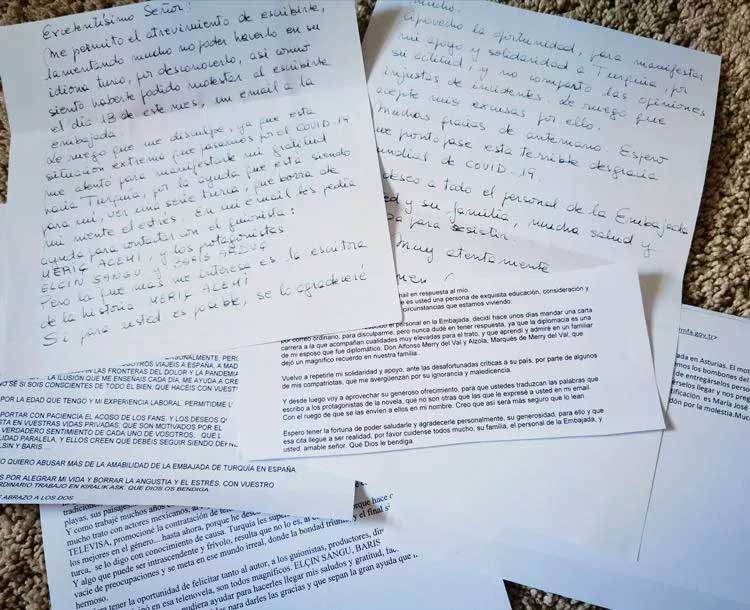 Excelentísimo Señor:
Me permito el atrevimiento de escribirle,
lamentando mucho no poder hacerlo en su
idioma turco, por desconocerlo, así como
siento haberle podido molestar al escribirle
el día 13 de este mes, un email a la
embajada.
Le ruego que me disculpe, ya que esta
situación extrema que pasamos por el COVID-19
me alentó para manifestarle mi gratitud
hacia Turquía, por la ayuda que está siendo
para mí, ver una serie turca, que borra de
mi mente el estrés. En mi email les pedía
ayuda para contactar con el guionista:
MERIÇ ACEMI, y los protagonistas
ELÇIN SANGU y BARIS ARDUÇ
Pero la que más me interesa es la escritora
de la historia MERIÇ ACEMI
Si para usted es posible, se lo agradeceré
mucho.
Aprovecho la oportunidad, para manifestar
mi apoyo y solidaridad a Turquía, por
su actitud, y no comparto las opiniones
injustas de incidentes. Le ruego que
acepte mis excusas por ello.
Muchas gracias de antemano. Espero
que pronto pase esta terrible desgracia
mundial de COVID-19.
deseo a todo el personal de la Embajada
ed y su familia, mucha salud y
para resistir
Muy atentamente
mail en respuesta al mío.
e es usted una persona de exquisita educación, consideración y
circunstancias que estamos viviendo.
personal en la Embajada, decidí hace unos días mandar una carta
por correo ordinario, para disculparme, pero nunca dudé en tener respuesta, ya que la diplomacia es una
carrera a la que acompañan cualidades muy elevadas para el trato, y que aprendí a admirar en un familiar
de mi esposo que fue diplomático, Don Alfonso Merry del Val y Alzola, Marqués de Merry del Val, que
dejó un magnífico recuerdo en nuestra familia.
Vuelvo a repetirle mi solidaridad y apoyo, ante las desafortunadas críticas a su país, por parte de algunos
de mis compatriotas, que me avergüenzan por su ignorancia y maledicencia.
Y desde luego voy a aprovechar su generoso ofrecimiento, para que ustedes traduzcan las palabras que
escribo a los protagonistas de la novela, que no son otras que las que le exprese a usted en mi email.
Con el ruego de que se las envíen a ellos en mi nombre. Creo que así será más seguro que lo lean.
Espero tener la fortuna de poder saludarle y agradecerle personalmente, su generosidad, para ello y que
esa cita llegue a ser realidad, por favor cuídense todos mucho, su familia, el personal de la Embajada, y
usted, amable señor. Qué Dios le bendiga.
mfa.gov.tr>
ada en Asturias. El mot
mos los bombones de
de entregárselos person
sérselos llegar y nos preg
tificación es María José
dón por la molestia.Muc
ONALMENTE, PERO
OTROS VIAJEIS A ESPAÑA, A MAD
N LAS FRONTERAS DEL DOLOR Y LA PANDEMIA
LA ILUSIÓN QUE ME ENSEÑAIS CADA DÍA, ME AYUDA A CRE
NO SÉ SI SOIS CONSCIENTES DE TODO EL BIEN QUE HACÉIS CON VUEST
POR LA EDAD QUE TENGO Y MI EXPERIENCIA LABORAL, PERMITIDME
PORTAR CON PACIENCIA EL ACOSO DE LOS FANS, Y LOS DESEOS
STA EN VUESTRAS VIDAS PRIVADAS, QUE SON MOTIVADOS POR EL
VERDADERO SENTIMIENTO DE CADA UNO DE VOSOTROS, QUE
LIDAD PARALELA, Y ELLOS CREEN QUE DEBÉIS SEGUIR SIENDO
LSIN Y BARIS...
O QUIERO ABUSAR MÁS DE LA AMABILIDAD DE LA EMBAJADA DE TURQUÍA EN ESPAÑA
S POR ALEGRAR MI VIDA Y BORRAR LA ANGUSTIA Y EL ESTRÉS, CON VUESTRO
ORDINARIO TRABAJO EN KIRALIK ASK. QUE DIOS OS BENDIGA.
ABRAZO A LOS DOS
playas, sus paisajes
Y como trabajé muchos años
mucho trato con actores mexicanos, al
TELEVISA, promocioné la contratación de
los mejores en el género...hasta ahora, porque he
turca, se lo digo con conocimiento de causa. Turquía les
Y algo que puede ser intrascendente y frívolo, resulta que no lo es, al
vacíe de preocupaciones y se meta en ese mundo irreal, donde la bondad triunfa y el final
hermoso.
tener la oportunidad de felicitar tanto al autor, a los guionistas, productores,
en esa telenovela, son todos magníficos. ELÇIN SANGU, BARIS
pudiera ayudar para hacerles llegar mis saludos y gratitud,
para darles las gracias y que sepan la gran ayuda que